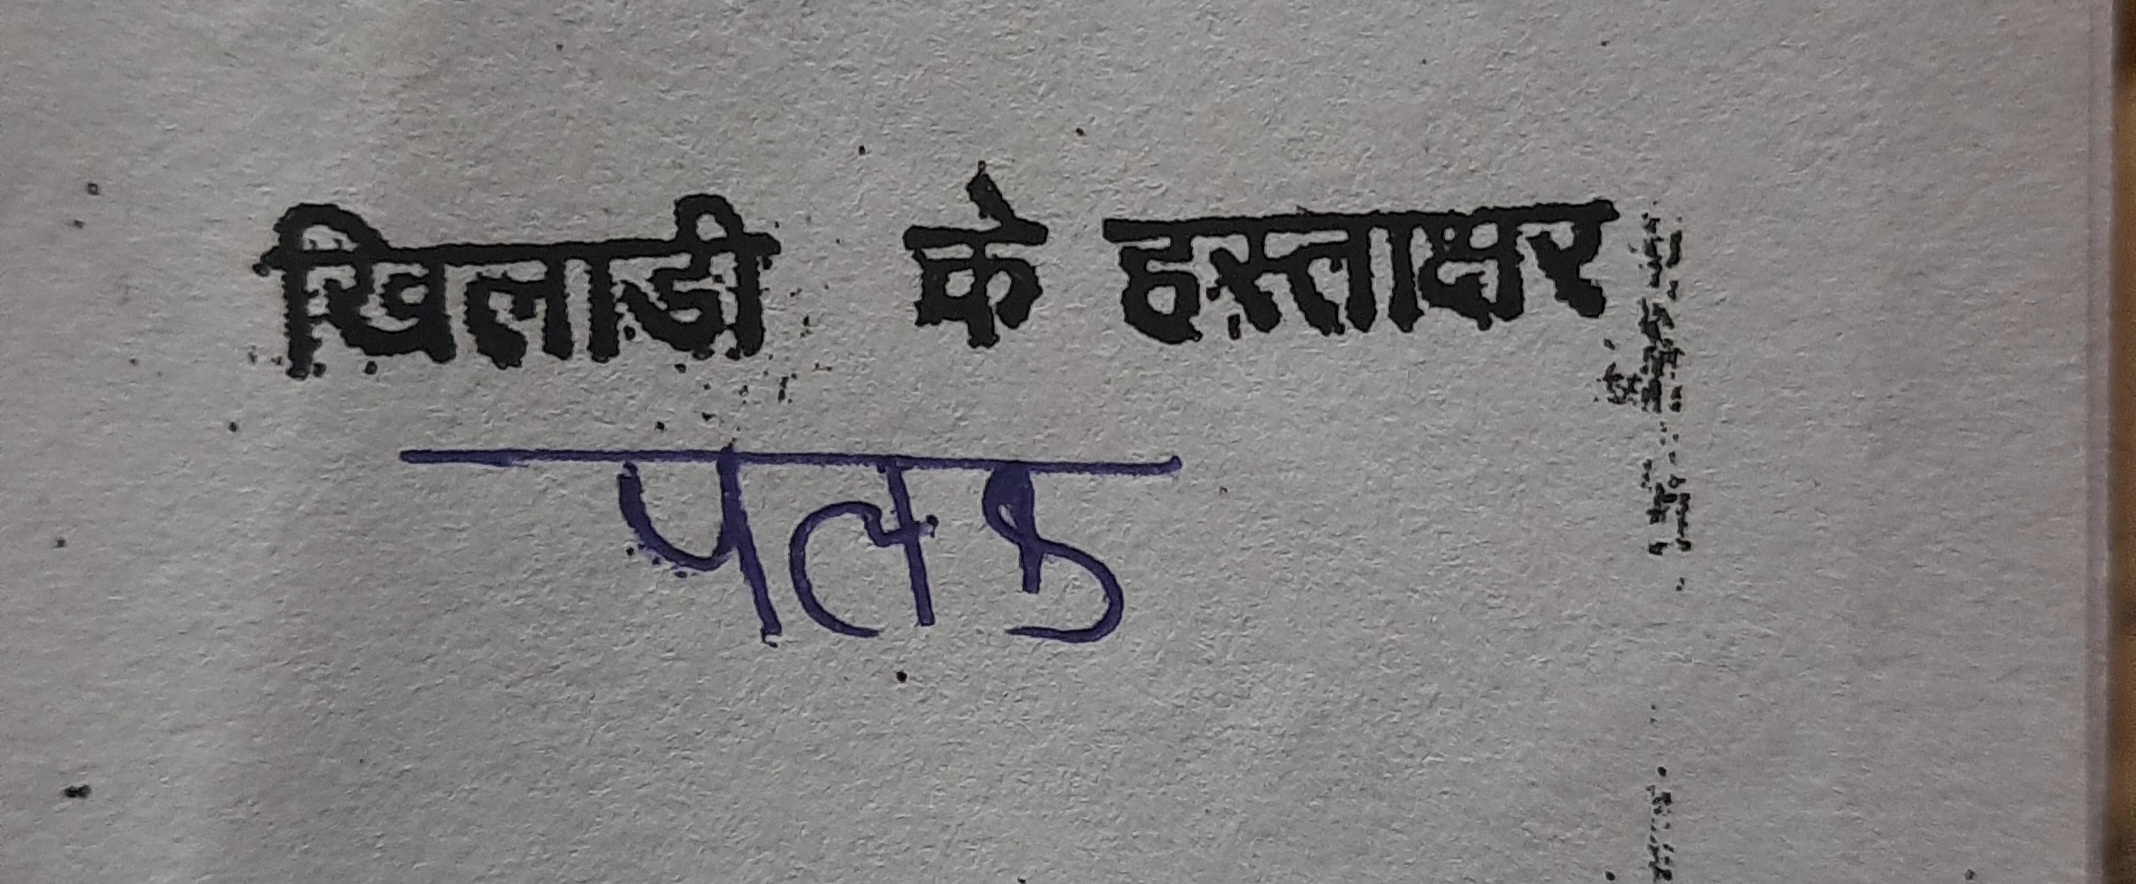 खिलाडी के हस्ताक्षर
पलक